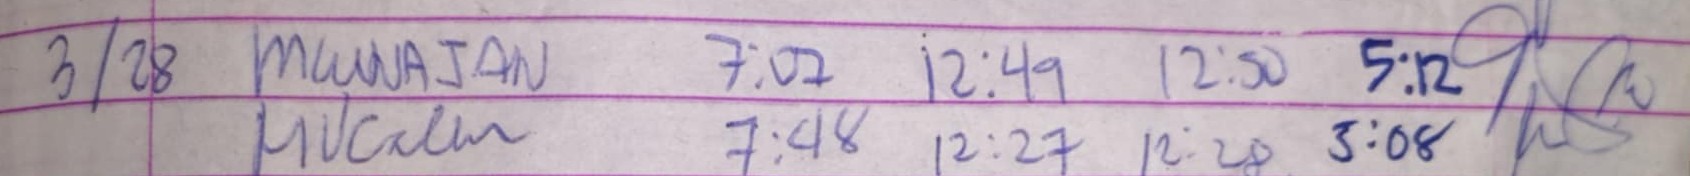 3/28 MUNAJAN 7:07 12:49 12:50 5:12
7:48 12:27 12:28 5:08